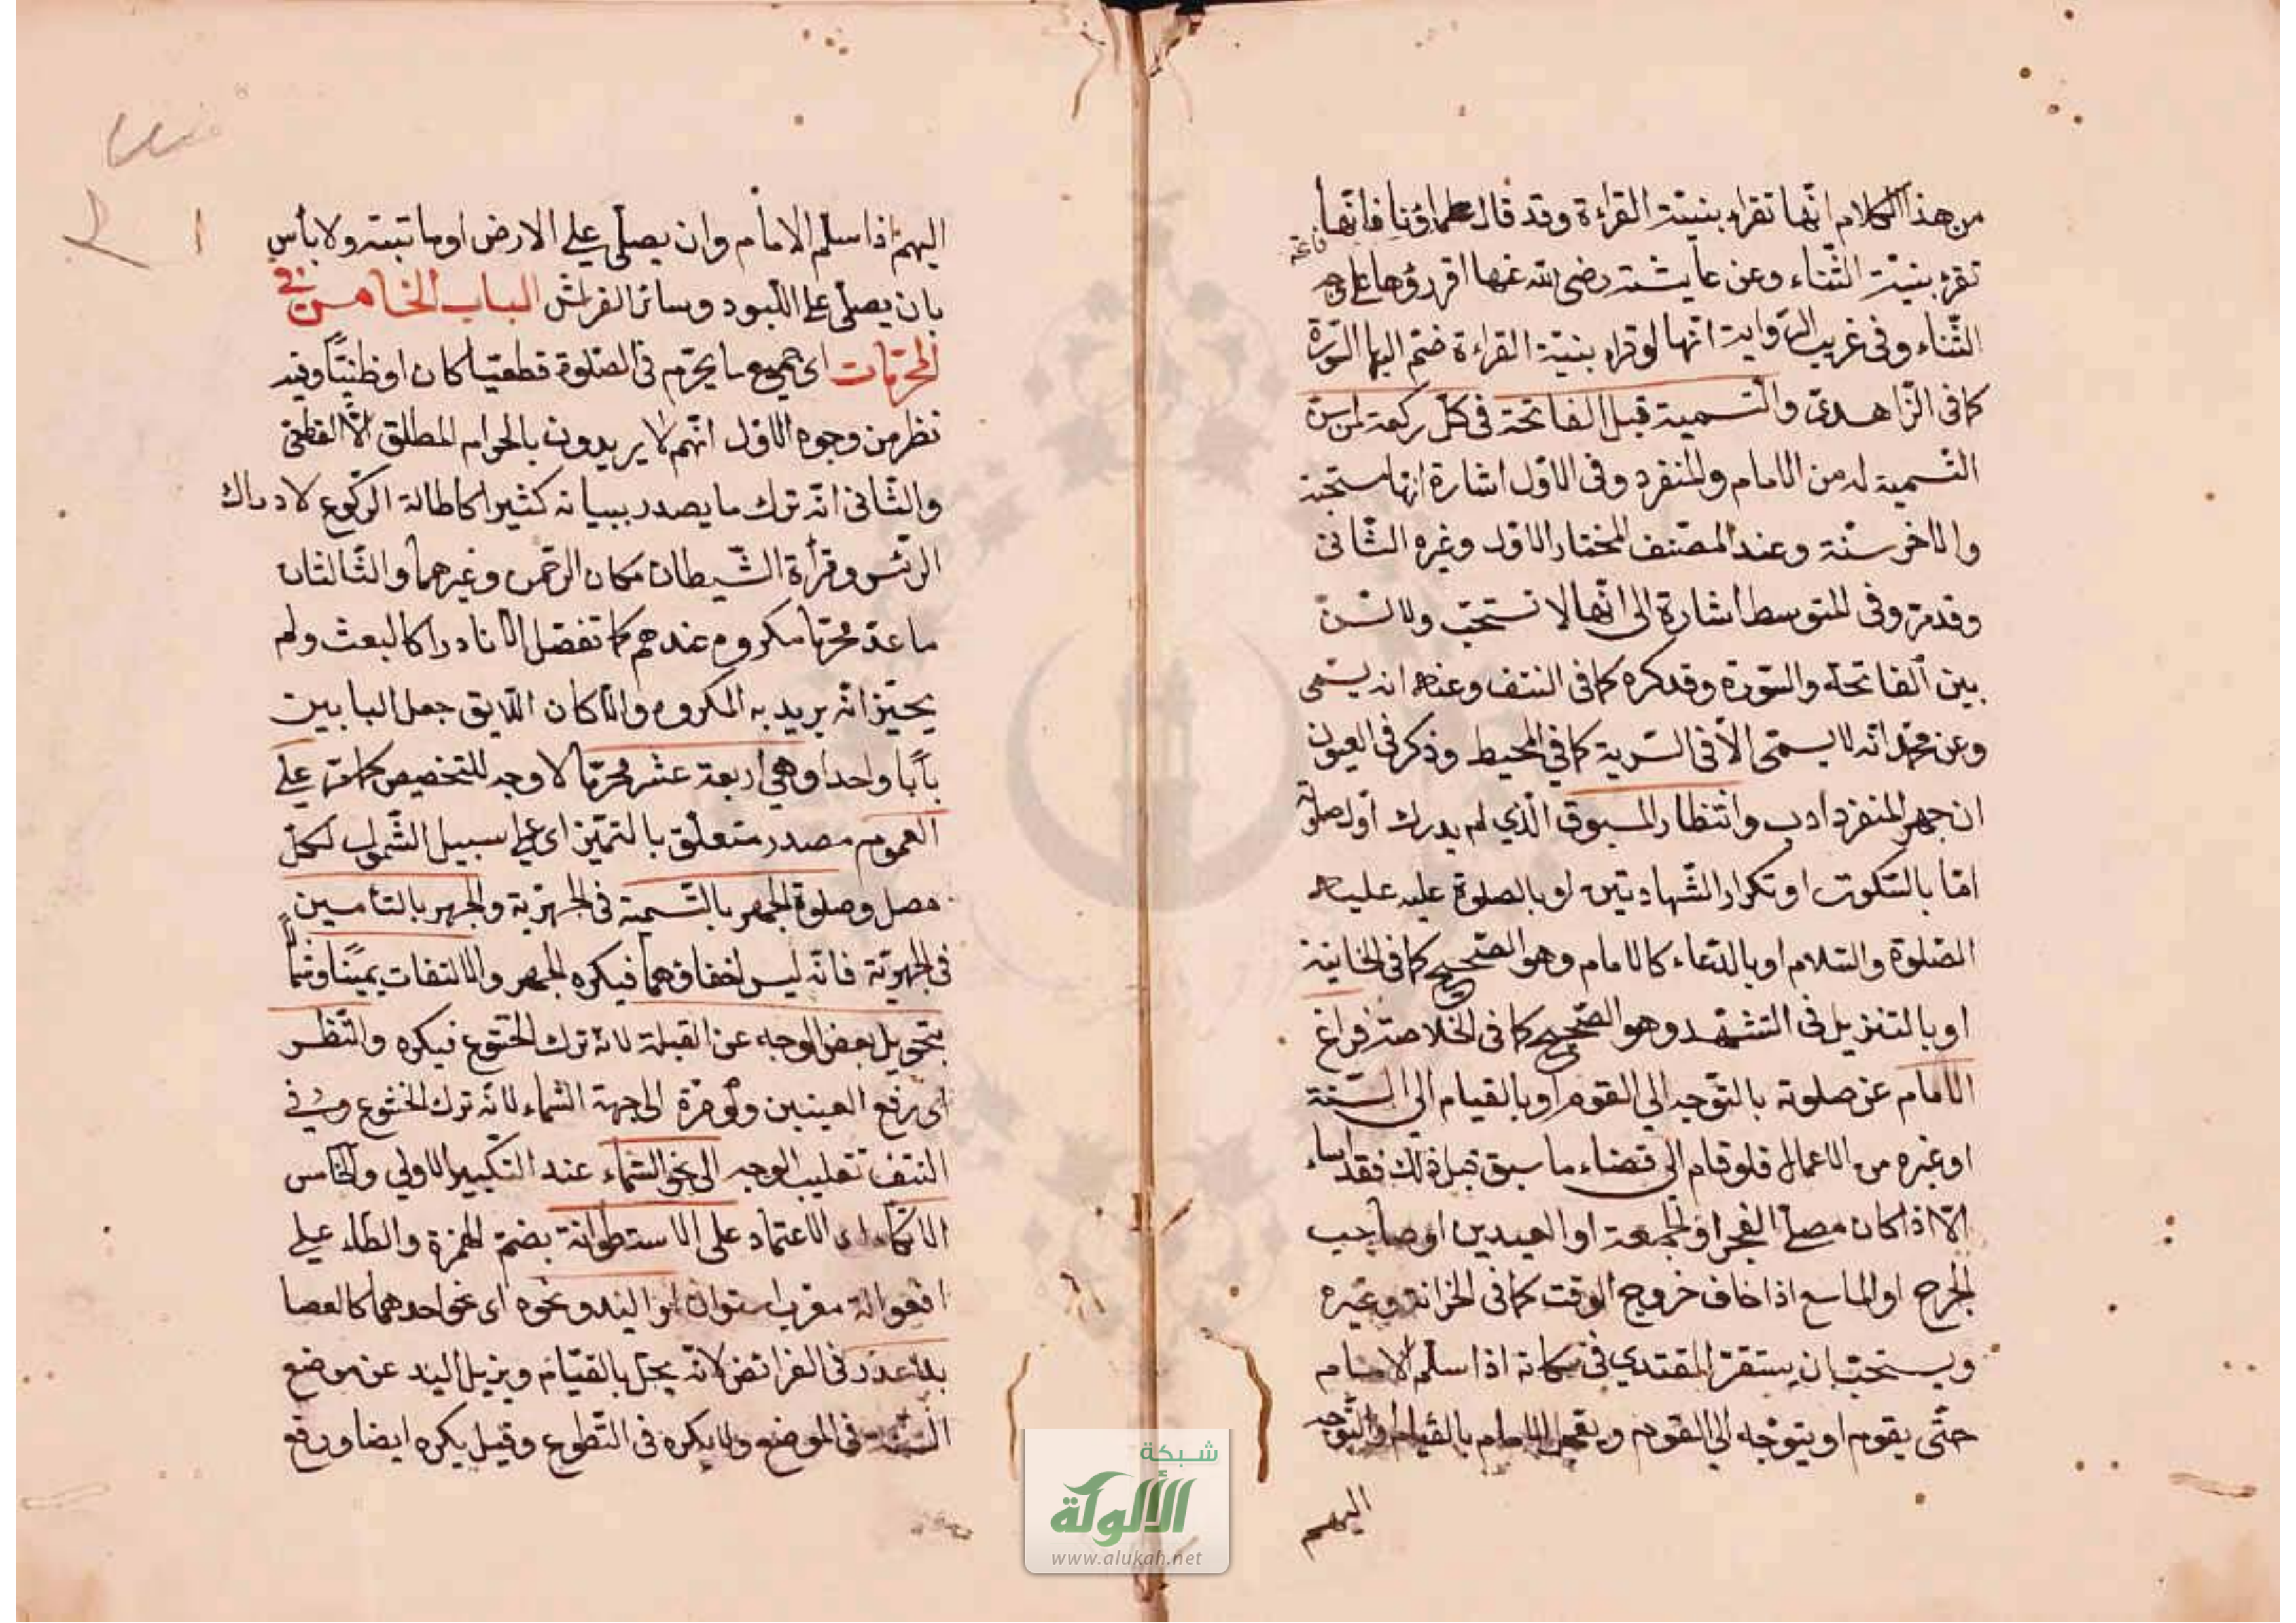 من هذا الكلام انّها تقراء بنيّة القراءة وقد قال علماؤنا فانّها
فاتحة
تقرء بنيّة الثّناء وعن عايشة رضى الله عنها اقرؤوها على وجه
الثّناء وفى غريب الرّواية انّها لو قراء بنيّة القراءة ضمّ اليها السّورة
كما فى الزّاهدىّ والتّسمية قبل الفاتحة فى كلّ ركعة لمن سنّ
التّسمية له من الامام والمنفرد وفى الاوّل اشارة انها مستحبّة
والاخر سنّة وعند المصنف المختار الاوّل وغيره الثّانى
وقد مرّ وفى المتوسط اشارة الى انّها لا تستحبّ ولا تسنّ
بين الفاتحة والسّورة وقد كره كما فى النتف وعنه انه يسمّى
وعن محمّد انّه لا يسمّى الّا فى السّرية كما في المحيط وذكر فى العيون
ان جهر المنفرد ادب وانتظار المسبوق الّذي لم يدرك اوّل صلوته
امّا بالسّكوت او تكرار الشّهادتين او بالصلوة عليه عليه
الصّلوة والسّلام او بالدّعاء كالامام وهو الصّحيح كما فى الخانية
او بالتنزيل فى التشهّد وهو الصّحيح كما فى الخلاصة فراغ
الامام عن صلوته بالتّوجه الي القوم او بالقيام الى السّنّة
او غيره من الاعمال فلو قام الى قضاء ما سبق قبل ذلك فقد اساء
الّا اذا كان مصلّى الفجر او الجمعة او العيدين او صاحب
الجرح او الماسح اذا خاف خروج الوقت كما فى الخزانة وغيره
ويستحبّ ان يستقرّ المقتدي فى مكانه اذا سلّم الامام
حتّى يقوم او يتوجّه الي القوم و الامام بالقيام والتّوجه
اليهم
اليهم اذا سلّم الامام وان يصلّى على الارض او ما تنبته ولا بأس
بان يصلّى على اللّبود وسائر الفراش الباب الخامس فى
المحرّمات اى جميع ما يحرّم فى الصّلوة قطعيّا كان او ظنيّا وفيه
نظر من وجوه الاوّل انّهم لا يريدون بالحرام المطلق الّا القطعىّ
والثّانى انّه ترك ما يصدر بيانه كثيرا كاطالة الرّكوع لادراك
الرّئس وقرأة الشّيطان مكان الرّحمن وغيرهما والثّالث ان
ما عدّ محرّما مكروه عندهم كما تفصّل الّا نادرا كالبعث ولم
يحيّز انّه يريد به المكروه والّا كان اللّايق جعل البابين
بابًا واحدا وهي اربعة عشر محرّما لا وجه للتخصيص كما مرّ على
العموم مصدر متعلّق بالتميّز اى على سبيل الشّمول لكلّ
مصل وصلوة الجهر بالتّسمية فى الجهريّة والجهر بالتأمين
فى الجهريّة فانّه ليس اخفاؤهما فيكره الجهر والالتفات يمينًا وشمالًا
بتحويل بعض الوجه عن القبلة لانّه ترك الخشوع فيكره والنّظر
اى رفع العينين ولو مرّة الى جهة السّماء لانّه ترك الخشوع وفى
النتف تقليب الوجه الى نحو السّماء عند التّكبير الاولي والخامس
الاتّكاء اى الاعتماد على الاسطوانة بضمّ الهمزة والطّاء على
افعوالة معرب ستوان او اليد ونحوه اى نحو احدهما كالعصا
بلا عذر فى الفرائض لانّه يخلّ بالقيام ويزيل اليد عن موضع
السّنّة فى الموضع ولا يكره فى التّطوع وقيل يكره ايضا ورفع
شبكة
الألوكة
www.alukah.net